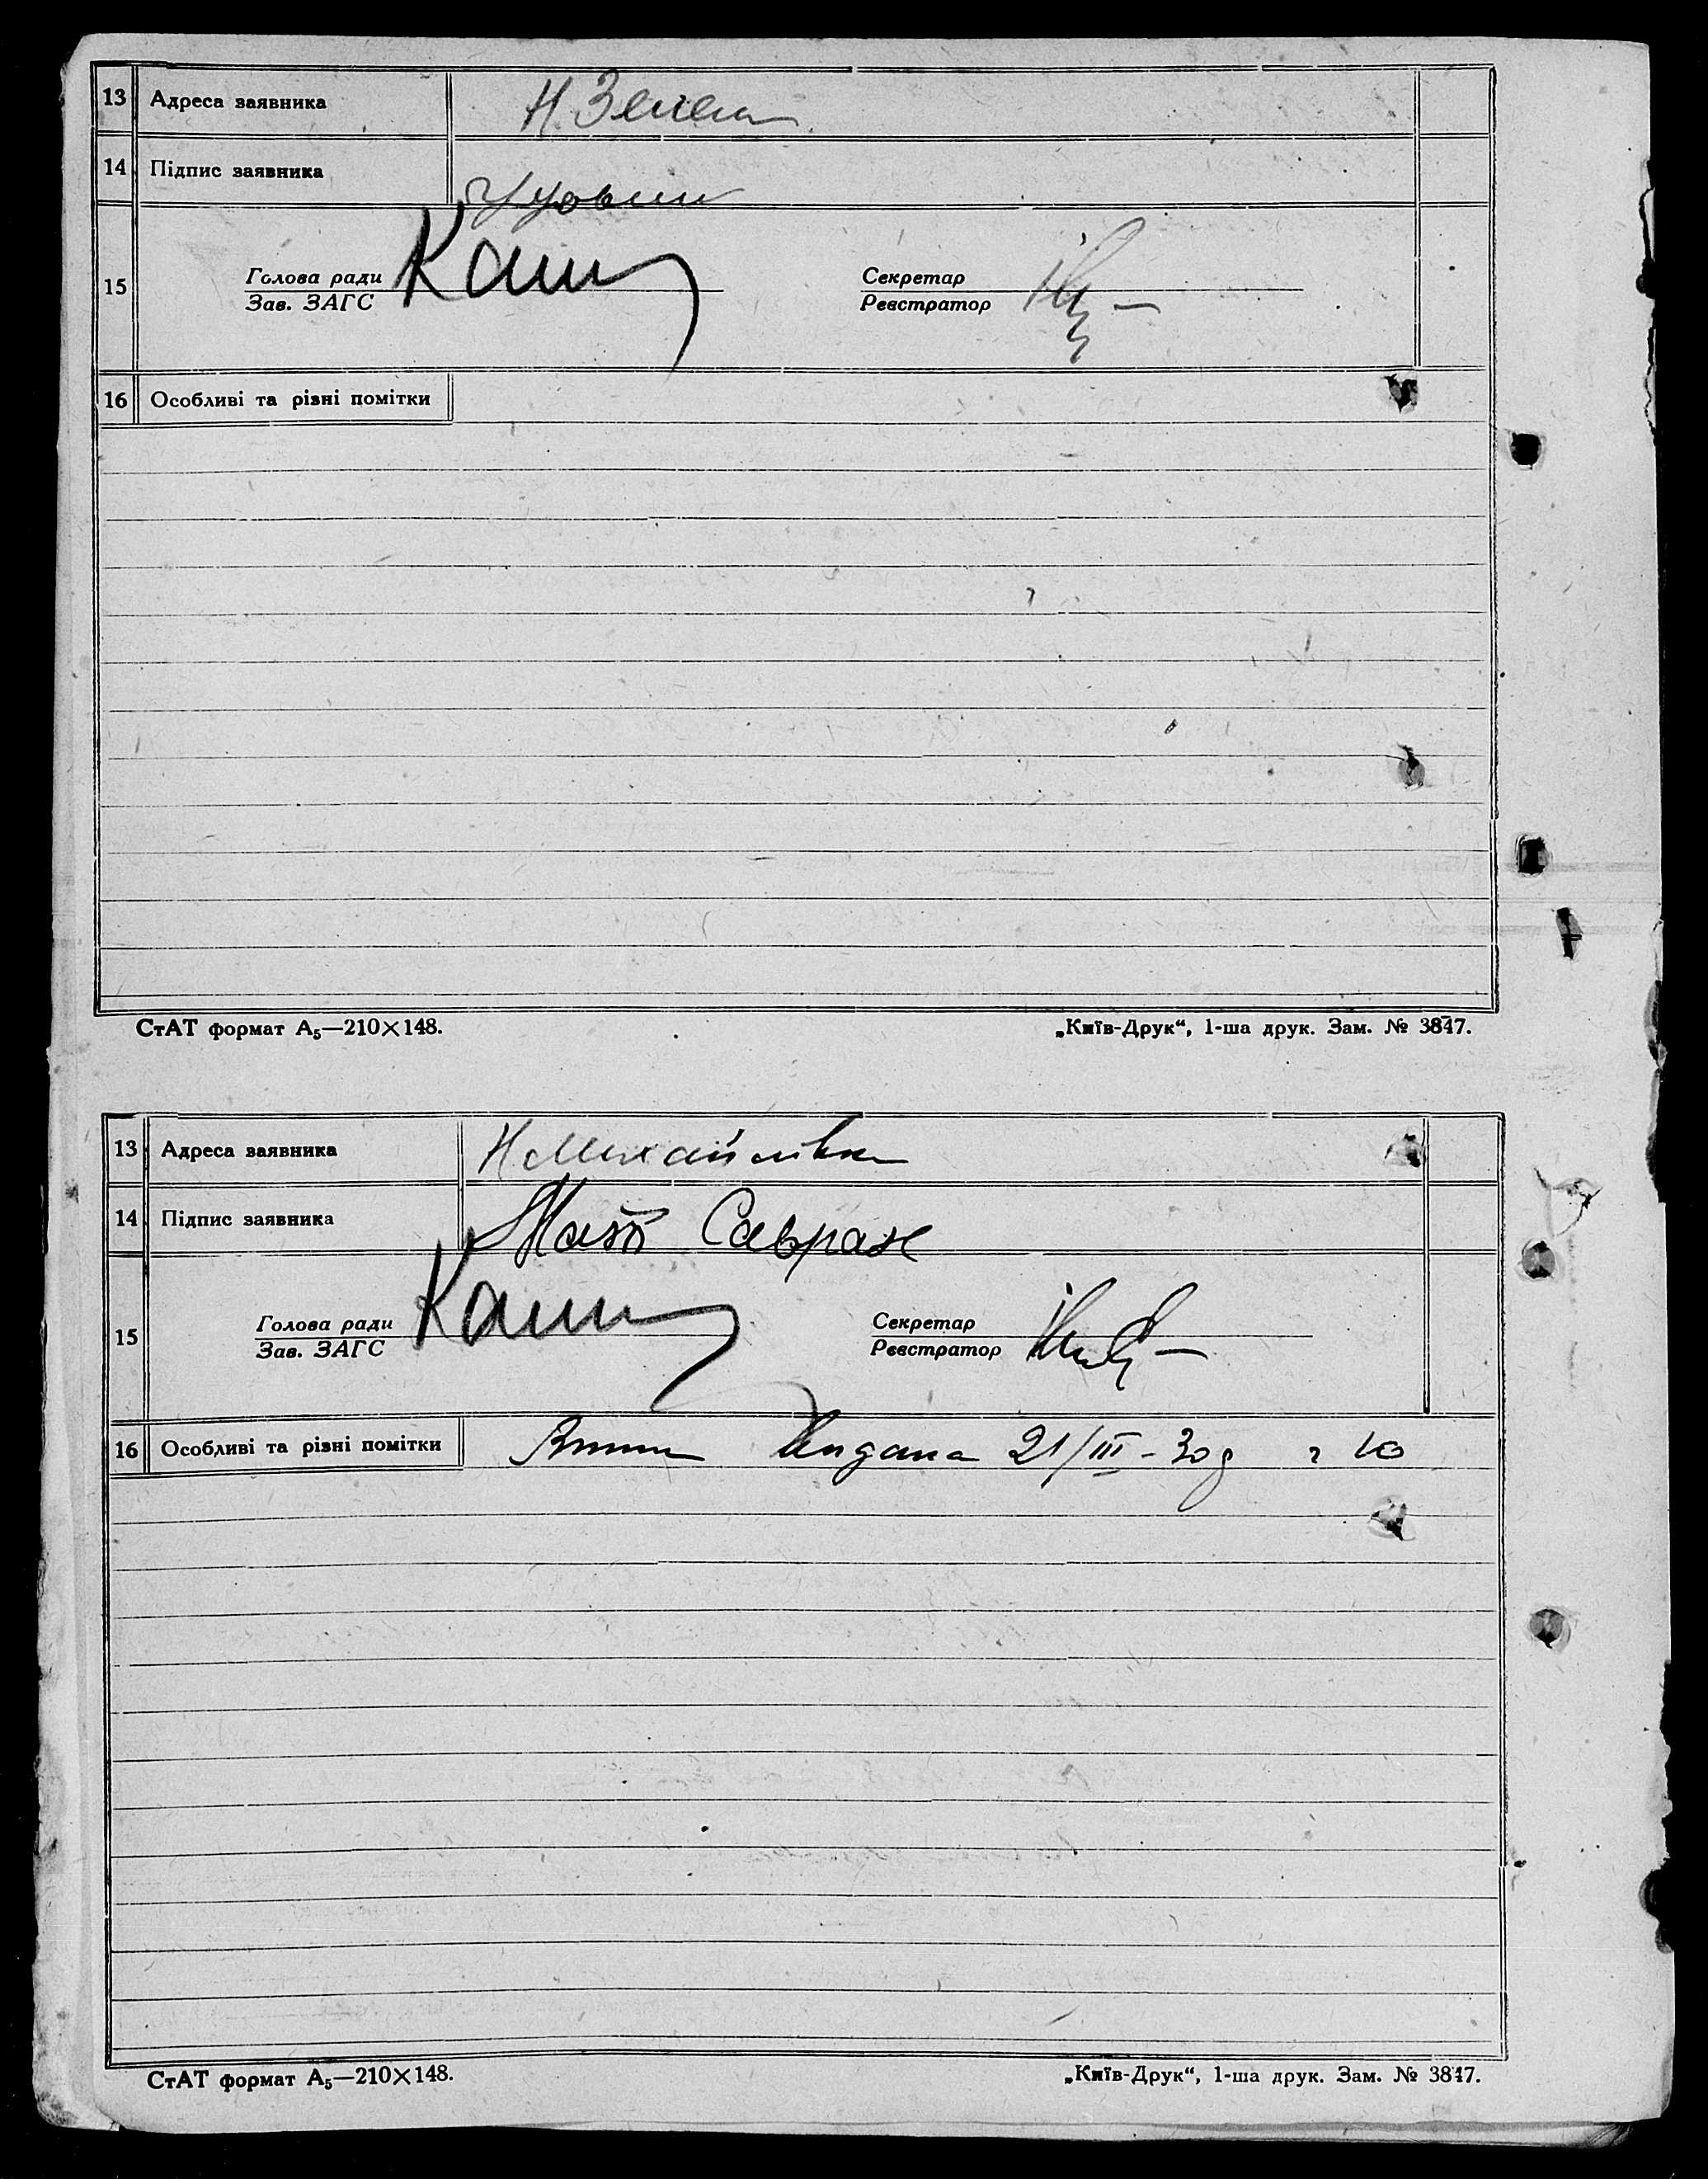 13 Адреса заявника Н. Зелен
14 Підпис заявника
15 Голова ради Секретар
Зав. ЗАГС Реєстратор
16 Особливі та різні помітки
СтАТ формат А₅—210×148. „Київ-Друк“, 1-ша друк. Зам. № 3847.
13 Адреса заявника Н Михайлівка
14 Підпис заявника Савран
15 Голова ради Секретар
Зав. ЗАГС Реєстратор
16 Особливі та різні помітки видана 21/III-30 р
СтАТ формат А₅—210×148. „Київ-Друк“, 1-ша друк. Зам. № 3847.